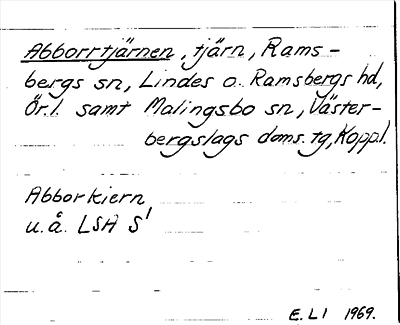 Abborrtjärnen, tjärn, Rams-
bergs sn, Lindes o. Ramsbergs hd,
Ör.l. samt Malingsbo sn, Väster-
bergslags doms. tg, Kopp.l.
Abborkiern
u.å. LSA S1
E.L1 1969.